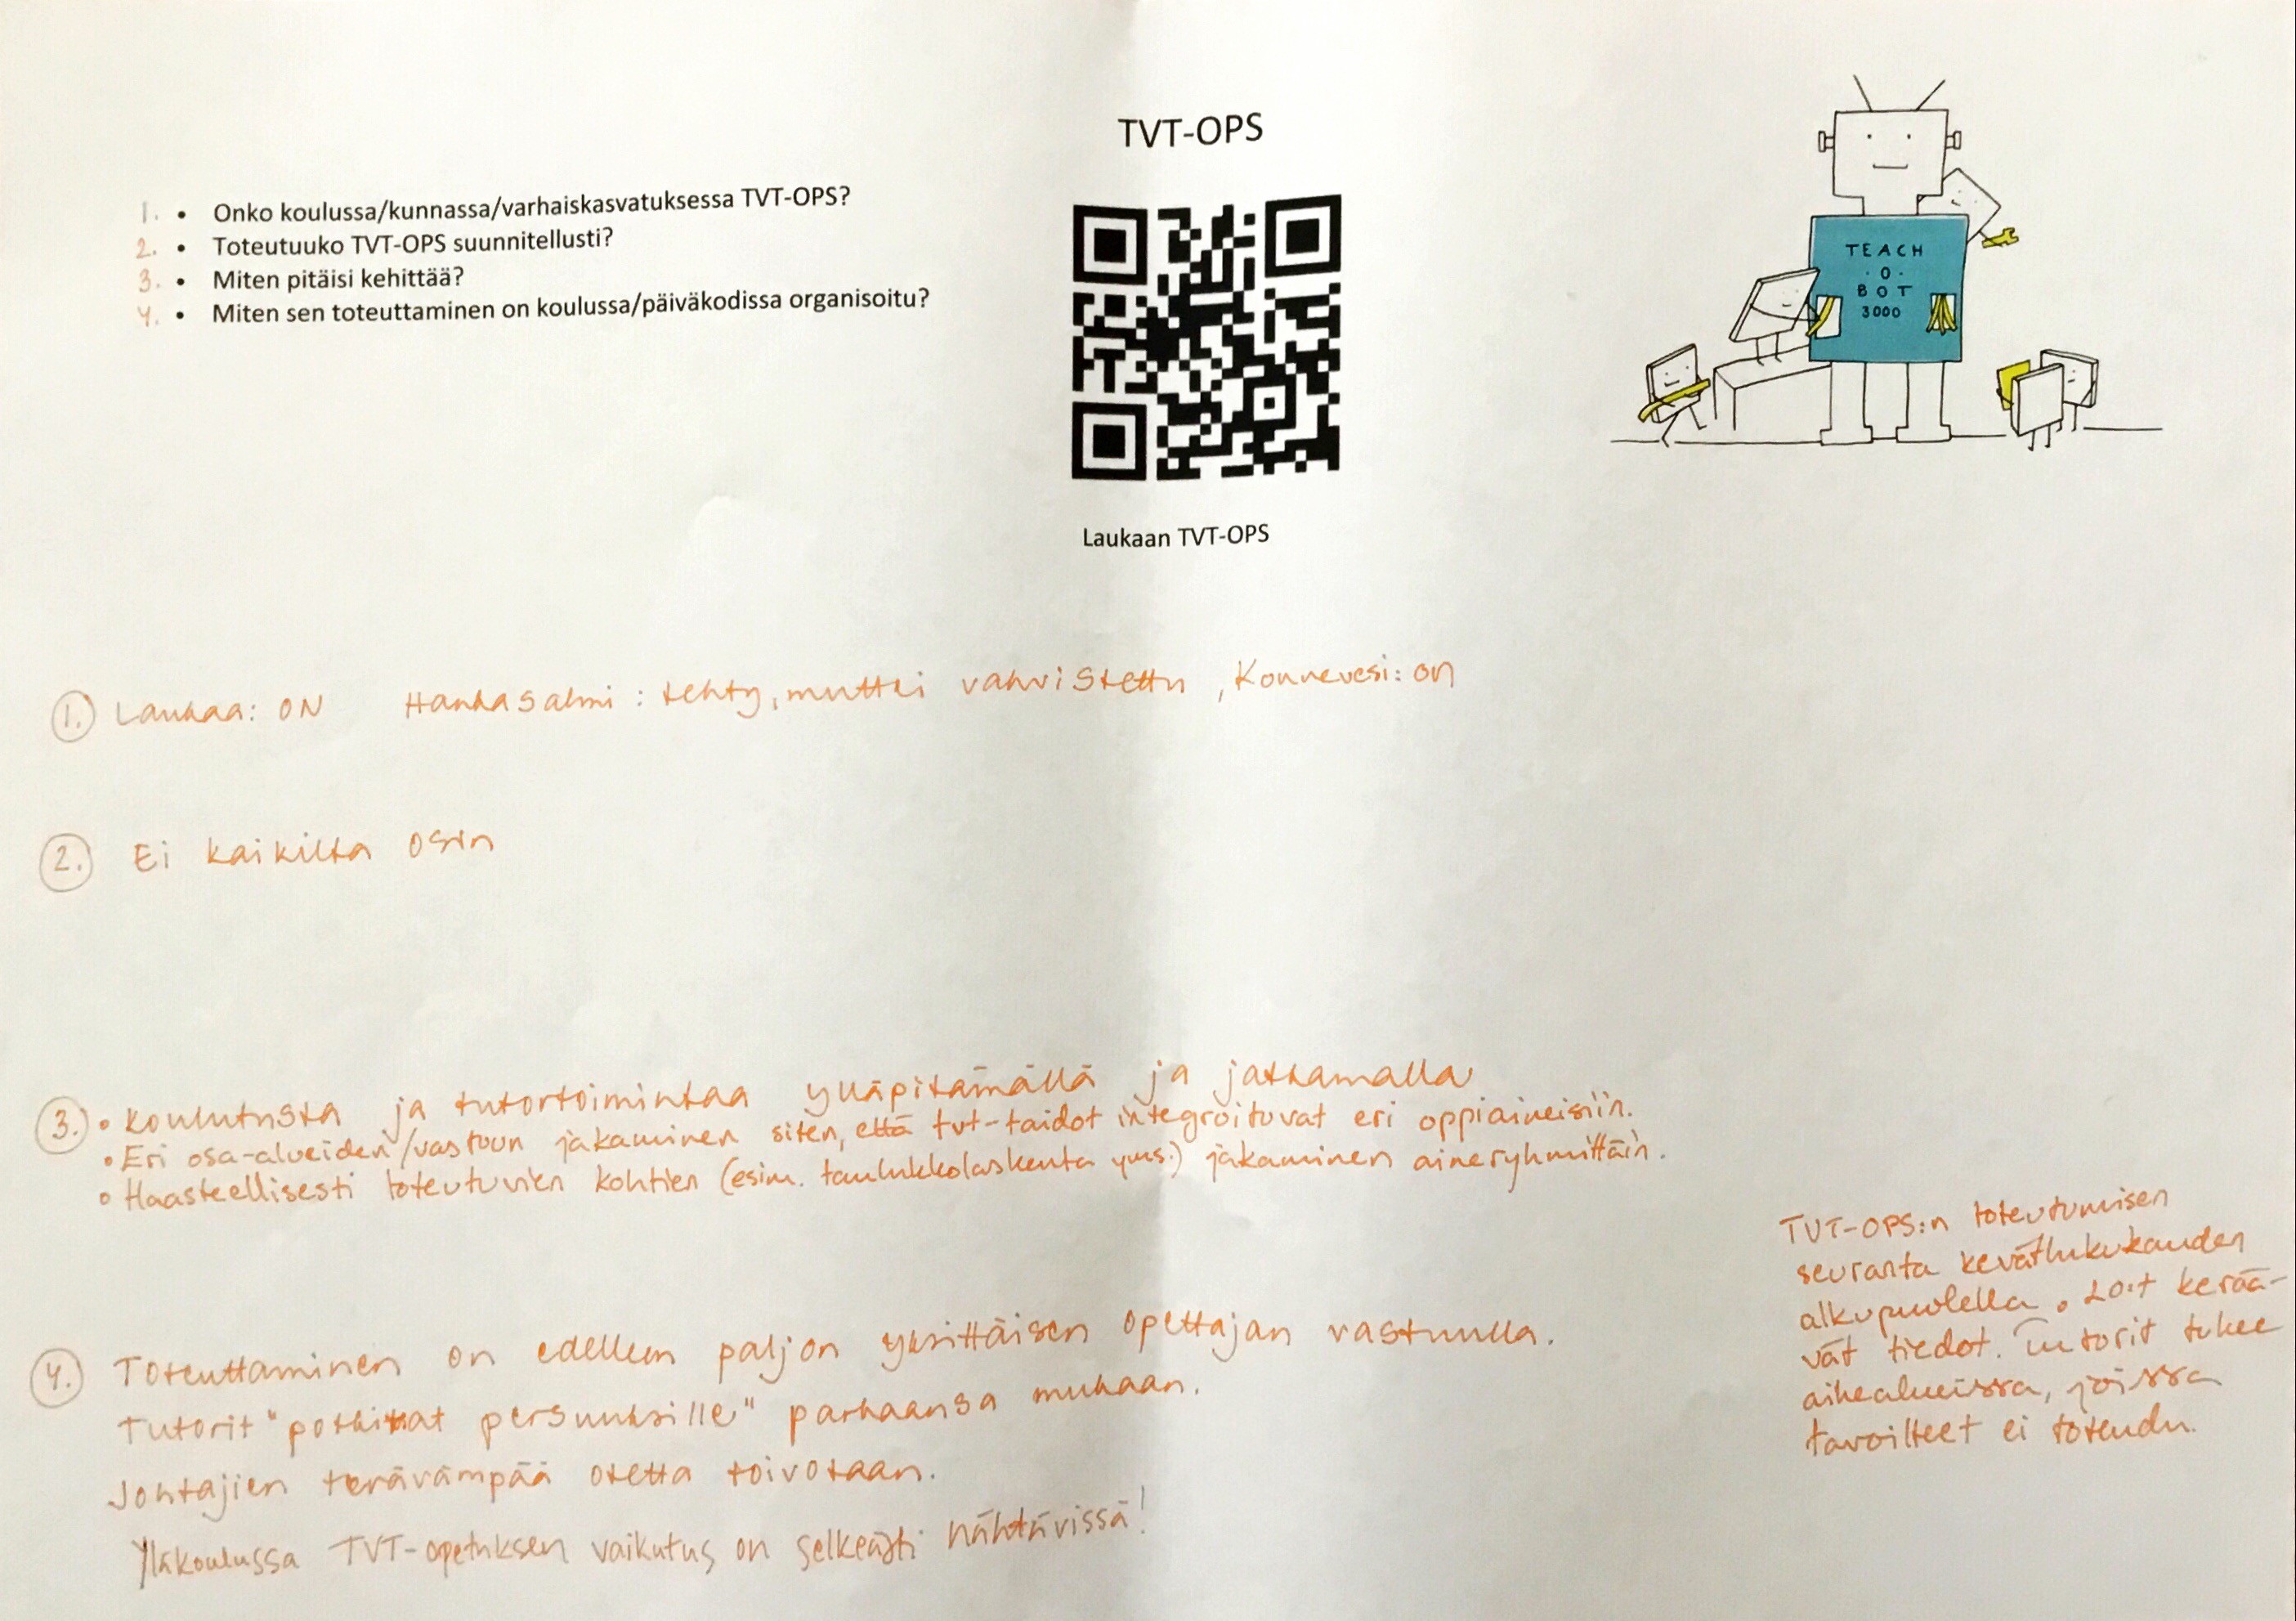 TVT-OPS
1. • Onko koulussa/kunnassa/varhaiskasvatuksessa TVT-OPS?
2. • Toteutuuko TVT-OPS suunnitellusti?
3. • Miten pitäisi kehittää?
4. • Miten sen toteuttaminen on koulussa/päiväkodissa organisoitu?
TEACH
·O·
BOT
3000
Laukaan TVT-OPS
1. Laukaa: ON Hankasalmi: tehty, muttei vahvistettu, Konnevesi: on
2. Ei kaikilta osin
3. • Koulutusta ja tutortoimintaa ylläpitämällä ja jatkamalla
• Eri osa-alueiden/vastuun jakaminen siten, että tvt-taidot integroituvat eri oppiaineisiin.
• Haasteellisesti toteutuvien kohtien (esim. taulukkolaskenta yms.) jakaminen aineryhmittäin.
4. Toteuttaminen on edelleen paljon yksittäisen opettajan vastuulla.
Tutorit "potkivat persuuksille" parhaansa mukaan.
Johtajien terävämpää otetta toivotaan.
Yläkoulussa TVT-opetuksen vaikutus on selkeästi nähtävissä!
TVT-OPS:n toteutumisen
seuranta kevätlukukauden
alkupuolella. LO:t kerää-
vät tiedot. Tutorit tukee
aihealueissa, joissa
tavoitteet ei toteudu.